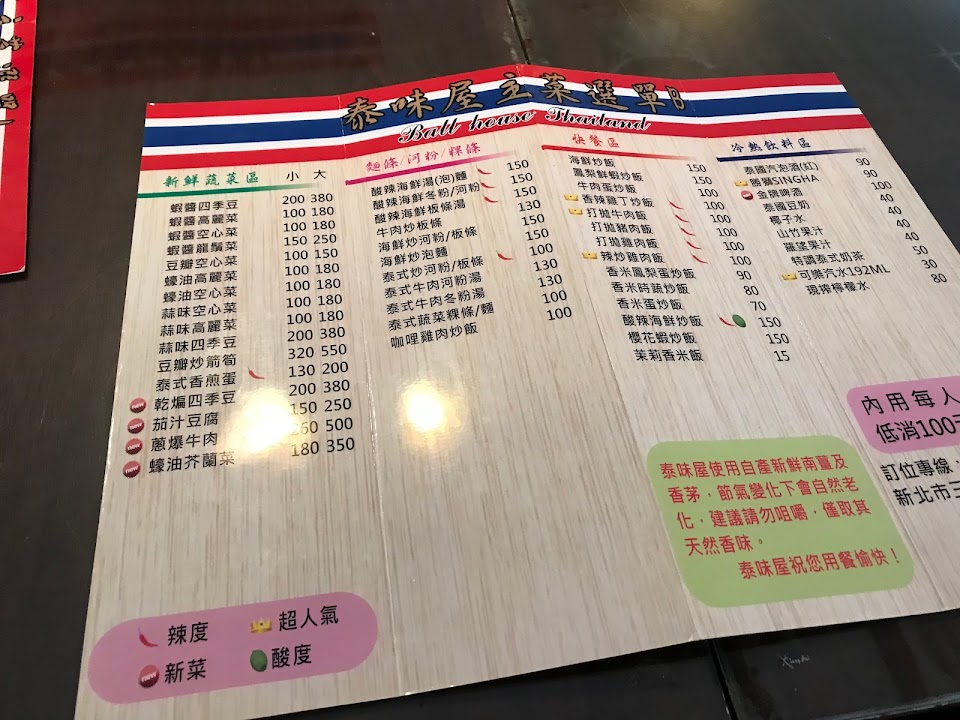 泰味屋主菜選單B
Batt house Thailand
新鮮蔬菜區 小 大
蝦醬四季豆
蝦醬高麗菜
蝦醬空心菜
蝦醬龍鬚菜
豆瓣空心菜
蠔油高麗菜
蠔油空心菜
蒜味空心菜
蒜味高麗菜
蒜味四季豆
豆瓣炒箭筍
泰式香煎蛋
new 乾煸四季豆
new 茄汁豆腐
new 蔥爆牛肉
new 蠔油芥蘭菜
200 380
100 180
150 250
100 150
100 180
100 180
100 180
100 180
200 380
320 550
130 200
200 380
150 250
260 500
180 350
麵條/河粉/粿條
酸辣海鮮湯(泡)麵
酸辣海鮮冬粉/河粉
酸辣海鮮板條湯
牛肉炒板條
海鮮炒河粉/板條
海鮮炒泡麵
泰式炒河粉/板條
泰式牛肉河粉湯
泰式牛肉冬粉湯
泰式蔬菜粿條/麵
咖哩雞肉炒飯
150
150
150
130
150
150
100
130
130
100
100
快餐區
海鮮炒飯
鳳梨鮮蝦炒飯
牛肉蛋炒飯
香辣雞丁炒飯
打拋牛肉飯
打拋豬肉飯
打拋雞肉飯
辣炒雞肉飯
香米鳳梨蛋炒飯
香米時蔬炒飯
香米蛋炒飯
酸辣海鮮炒飯
櫻花蝦炒飯
茉莉香米飯
150
150
100
100
100
100
100
90
80
70
150
150
15
冷熱飲料區
泰國汽泡酒(紅)
勝獅SINGHA
new 金檳啤酒
泰國豆奶
椰子水
山竹果汁
羅望果汁
特調泰式奶茶
可樂汽水192ML
現搾檸檬水
90
90
100
40
40
40
40
50
30
80
內用每人
低消100元
訂位專線
新北市三
泰味屋使用自產新鮮南薑及
香茅，節氣變化下會自然老
化，建議請勿咀嚼，僅取其
天然香味。
泰味屋祝您用餐愉快！
辣度 超人氣
new 新菜 酸度